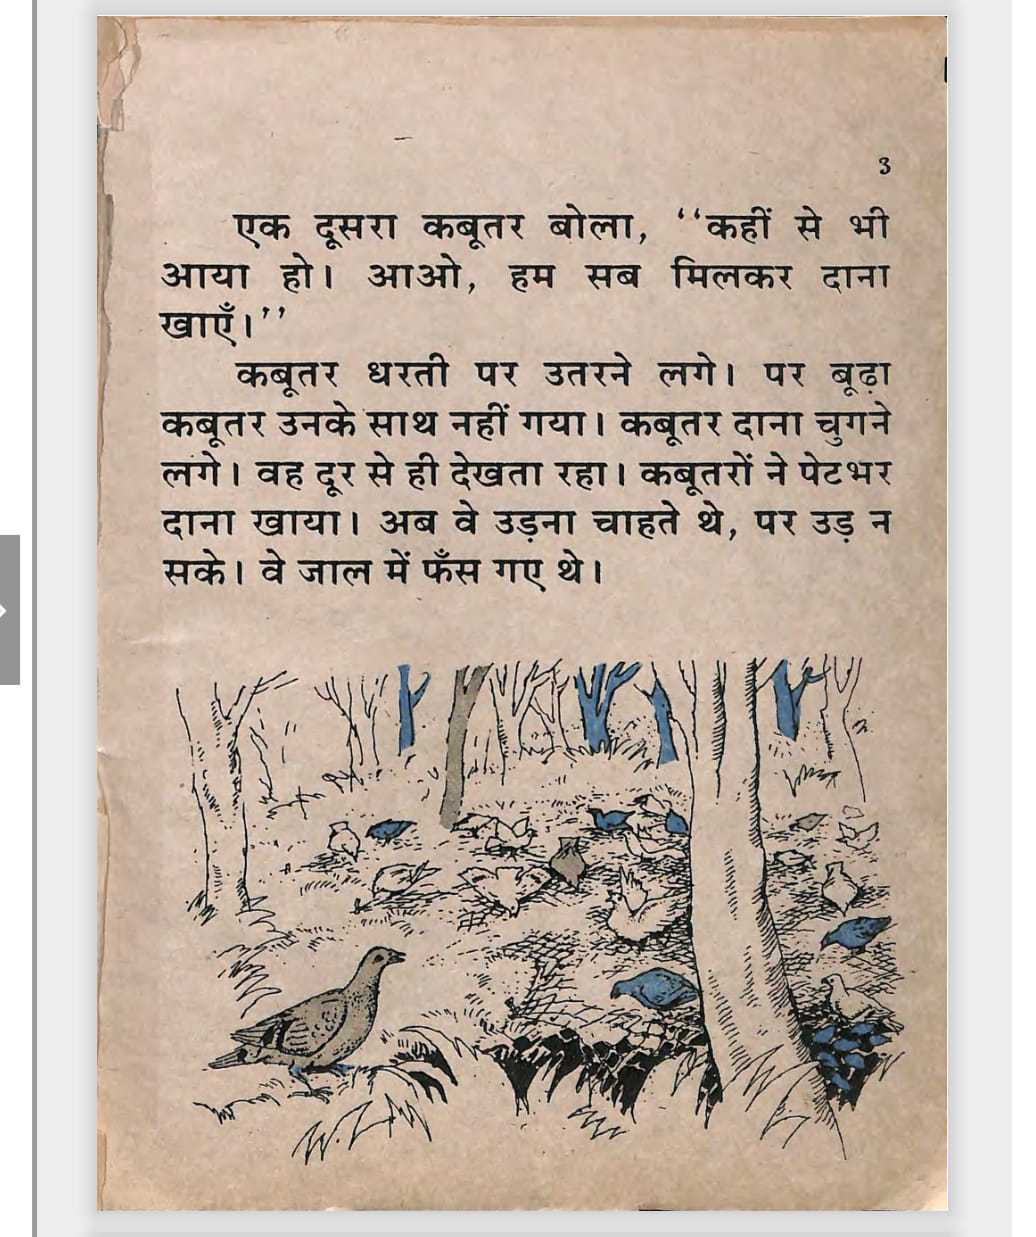 ३
एक दूसरा कबूतर बोला, ‘‘कहीं से भी
आया हो। आओ, हम सब मिलकर दाना
खाएँ।’’
कबूतर धरती पर उतरने लगे। पर बूढ़ा
कबूतर उनके साथ नहीं गया। कबूतर दाना चुगने
लगे। वह दूर से ही देखता रहा। कबूतरों ने पेटभर
दाना खाया। अब वे उड़ना चाहते थे, पर उड़ न
सके। वे जाल में फँस गए थे।